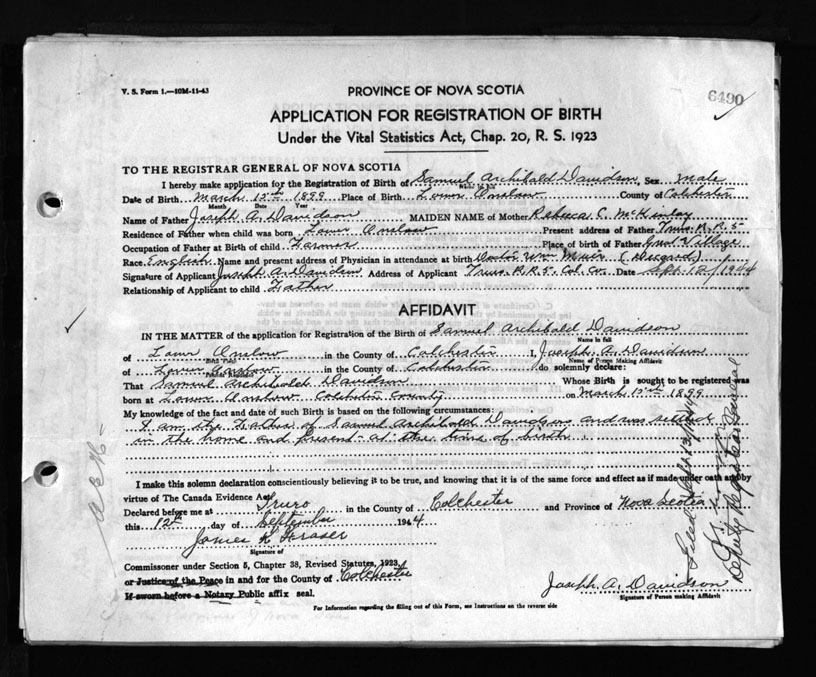 V. S. Form 1.—10M-11-43
PROVINCE OF NOVA SCOTIA
6490
APPLICATION FOR REGISTRATION OF BIRTH
Under the Vital Statistics Act, Chap. 20, R. S. 1923
TO THE REGISTRAR GENERAL OF NOVA SCOTIA
I hereby make application for the Registration of Birth of Samuel Archibald Davidson, Sex male
Date of Birth March 15th 1899 Place of Birth Lower Onslow County of Colchester
Month Date Year
Name of Father Joseph A. Davidson MAIDEN NAME of Mother Rebecca C. McKinlay
Residence of Father when child was born Lower Onslow Present address of Father Truro, R. R. 5
Occupation of Father at Birth of child Farmer Place of Birth of Father Great Village
Race English Name and present address of Physician in attendance at birth Doctor Wm Muir (Deceased)
Signature of Applicant Joseph A. Davidson Address of Applicant Truro R.R.5. Col. Co. Date Sept. 12/1944
Relationship of Applicant to child Father
AFFIDAVIT
IN THE MATTER of the application for Registration of the Birth of Samuel Archibald Davidson
Name in full
of Lower Onslow in the County of Colchester I, Joseph A. Davidson
Name of Person Making Affidavit
of Lower Onslow in the County of Colchester do solemnly declare:
That Samuel Archibald Davidson Whose Birth is sought to be registered was
born at Lower Onslow Colchester County on March 15th 1899
My knowledge of the fact and date of such Birth is based on the following circumstances:
I am the Father of Samuel Archibald Davidson and was
in the home and present at the time of birth
I make this solemn declaration conscientiously believing it to be true, and knowing that it is of the same force and effect as if made under oath and by
virtue of The Canada Evidence Act.
Declared before me at Truro in the County of Colchester and Province of Nova Scotia
this 12th day of September 1944
James K Fraser
Signature of
Commissioner under Section 5, Chapter 38, Revised Statutes, 1923,
or Justice of the Peace in and for the County of Colchester
If sworn before a Notary Public affix seal.
Joseph A. Davidson
Signature of Person making Affidavit
For Information regarding the filling out of this Form, see Instructions on the reverse side
Filed Sept 13/44
Deputy Registrar General